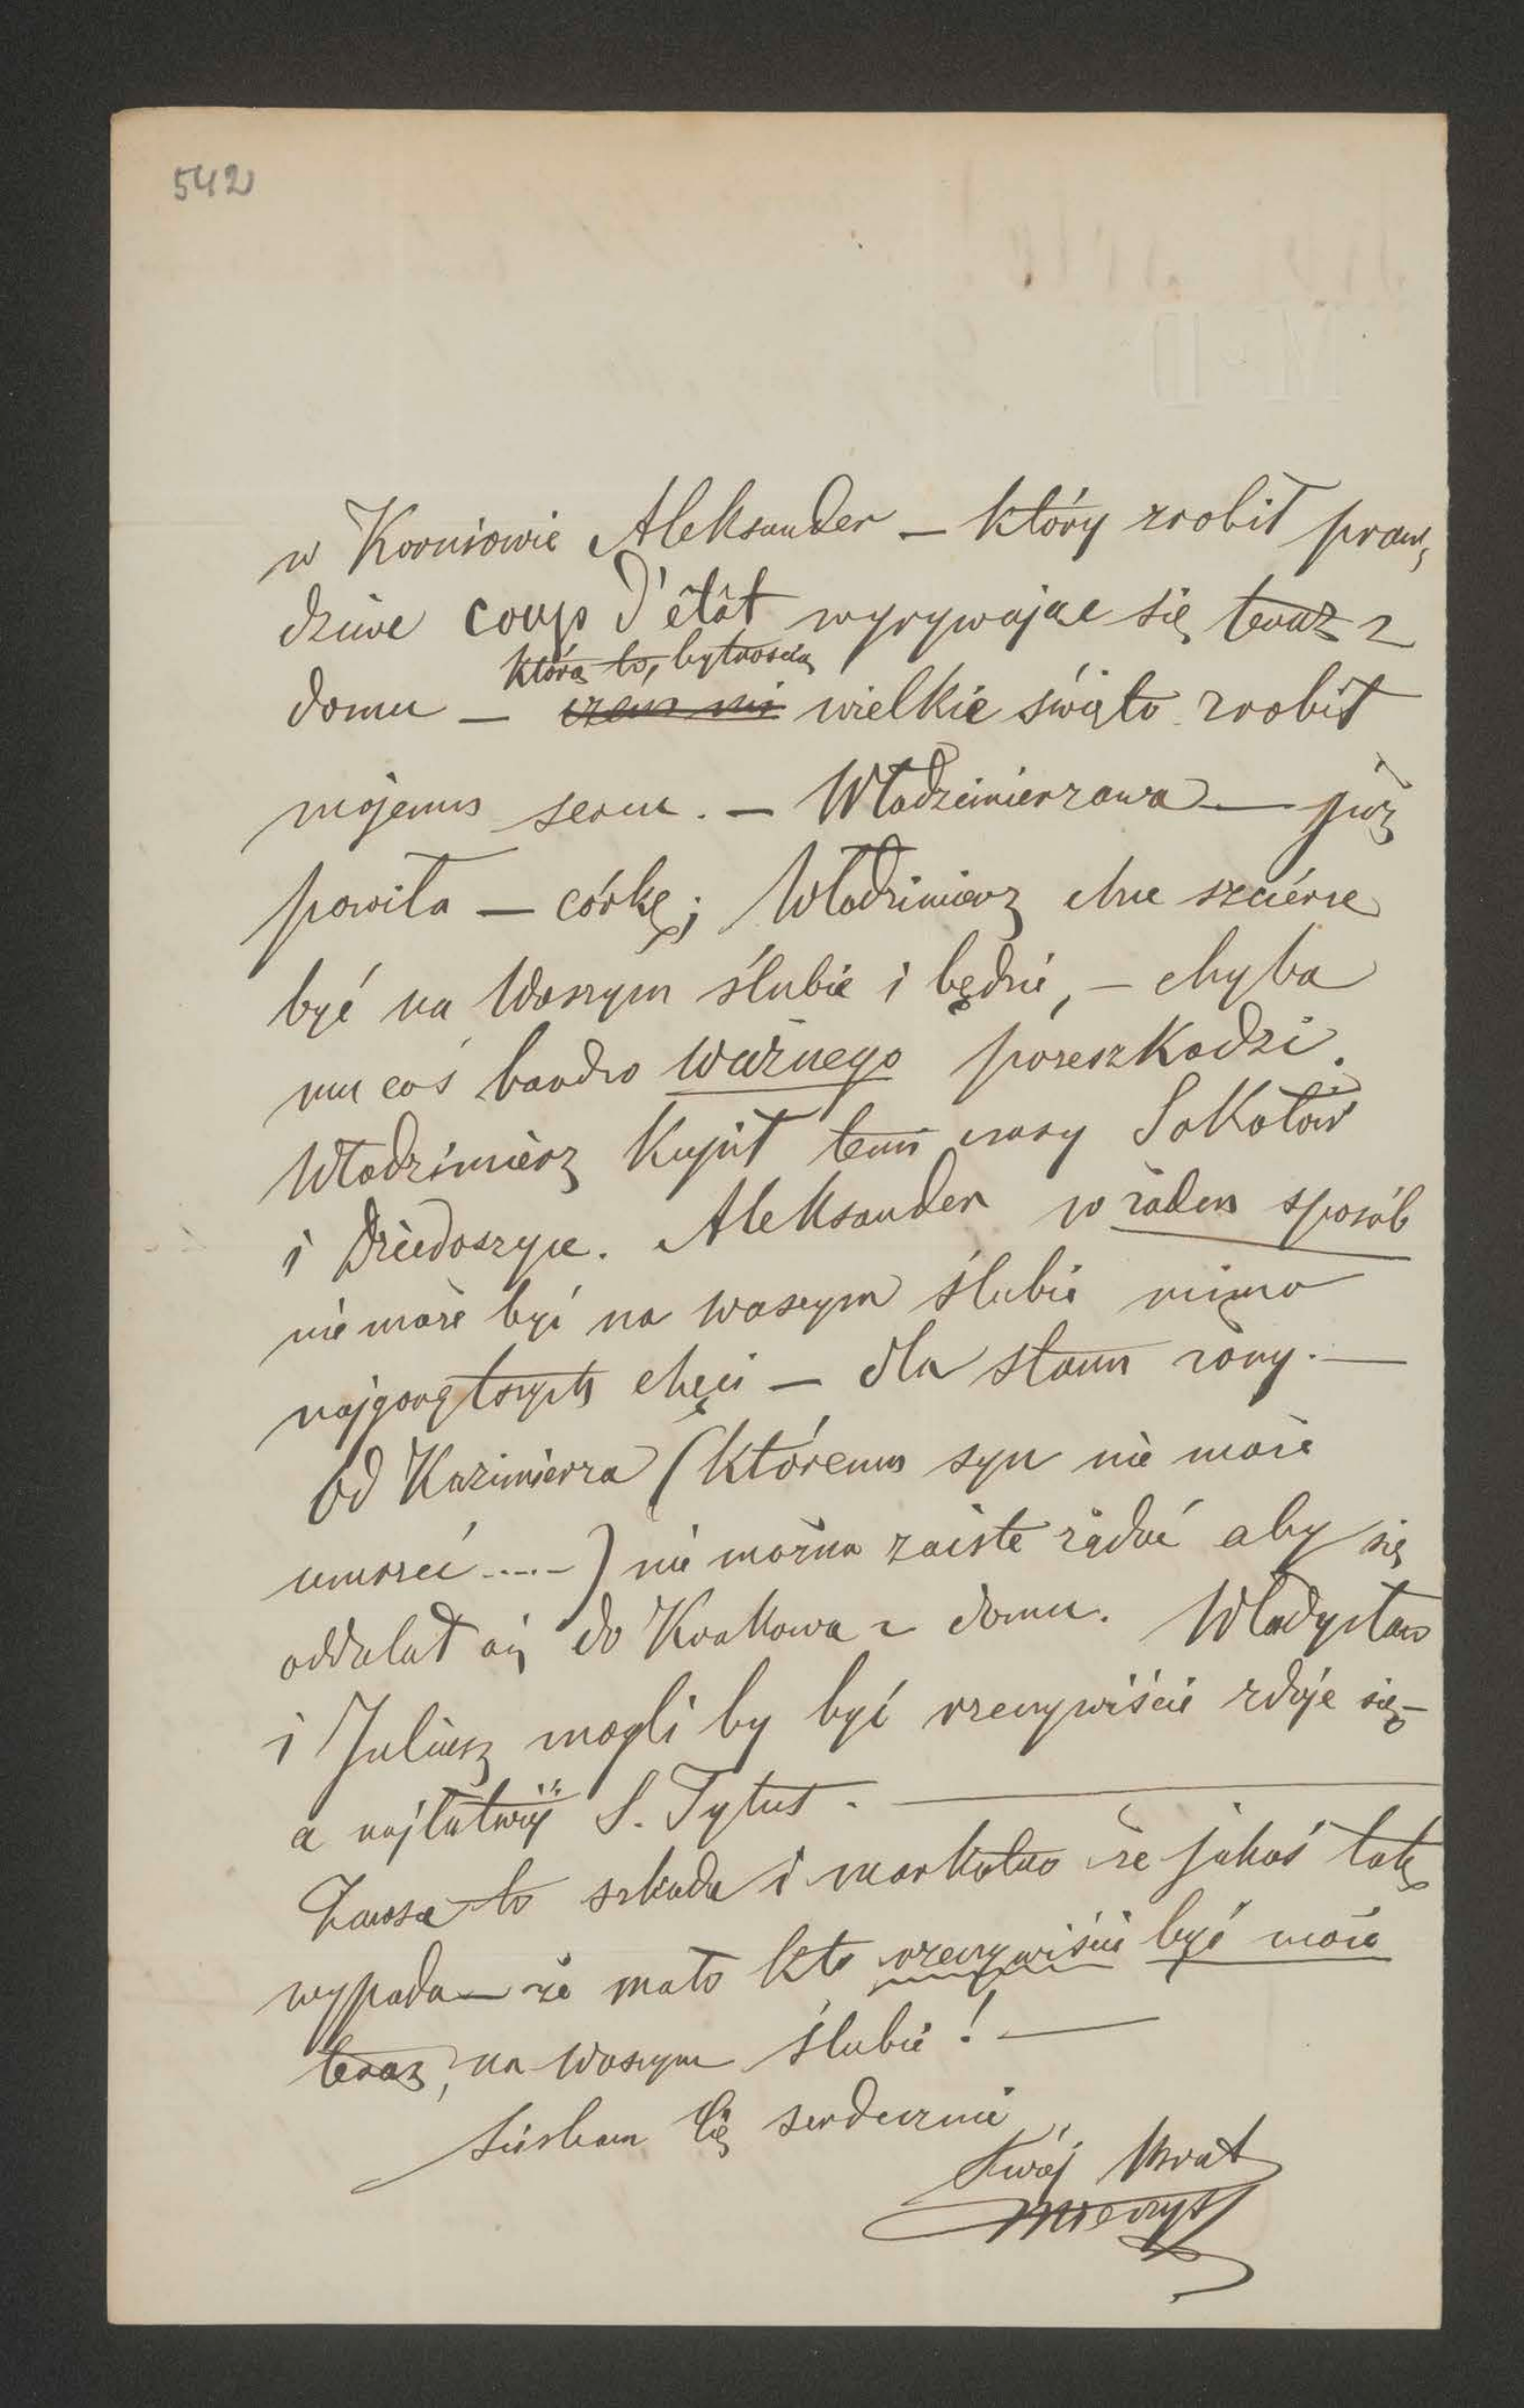 542
w Korniowie Aleksander – który zrobił praw,
dziwe coup d'état wyrywając się teraz z
którą to, bytnością
domu – czem mi wielkie święto zrobił
mojemu sercu. – Włodzimierzowa – już
powiła – córkę; Włodzimierz chce szczérze
być na Waszym ślubie i będzie, – chyba
mu coś bardzo ważnego przeszkodzi.
Włodzimierz kupił temi czasy Sokołów
i Dzieduszyce. Aleksander w żaden sposób
nie może być na waszym ślubie mimo
najgorętszych chęci – dla stanu żony. –
Od Kazimierza (któremu syn nie może
umrzeć .....) nie można zaiste żądać aby się
oddalał się do Krakowa z domu. Władysław
i Juliusz mogli by być rzeczywiście zdaje się –
a najłatwiéj S. Tytus. –
Zawsze to szkoda i markotno że jakoś tak
wypada – że mało kto rzeczywiście być może
teraz, na waszym ślubie! –
Ściskam Cię serdecznie
Twój Brat
Mieczysł